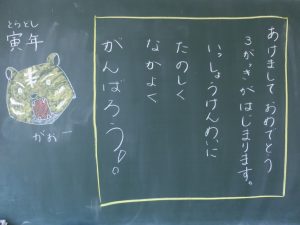 あけまして おめでとう
3がっきが はじまります。
いっしょうけんめいに
たのしく
なかよく
がんばろう!。
とらどし
寅年
がおー